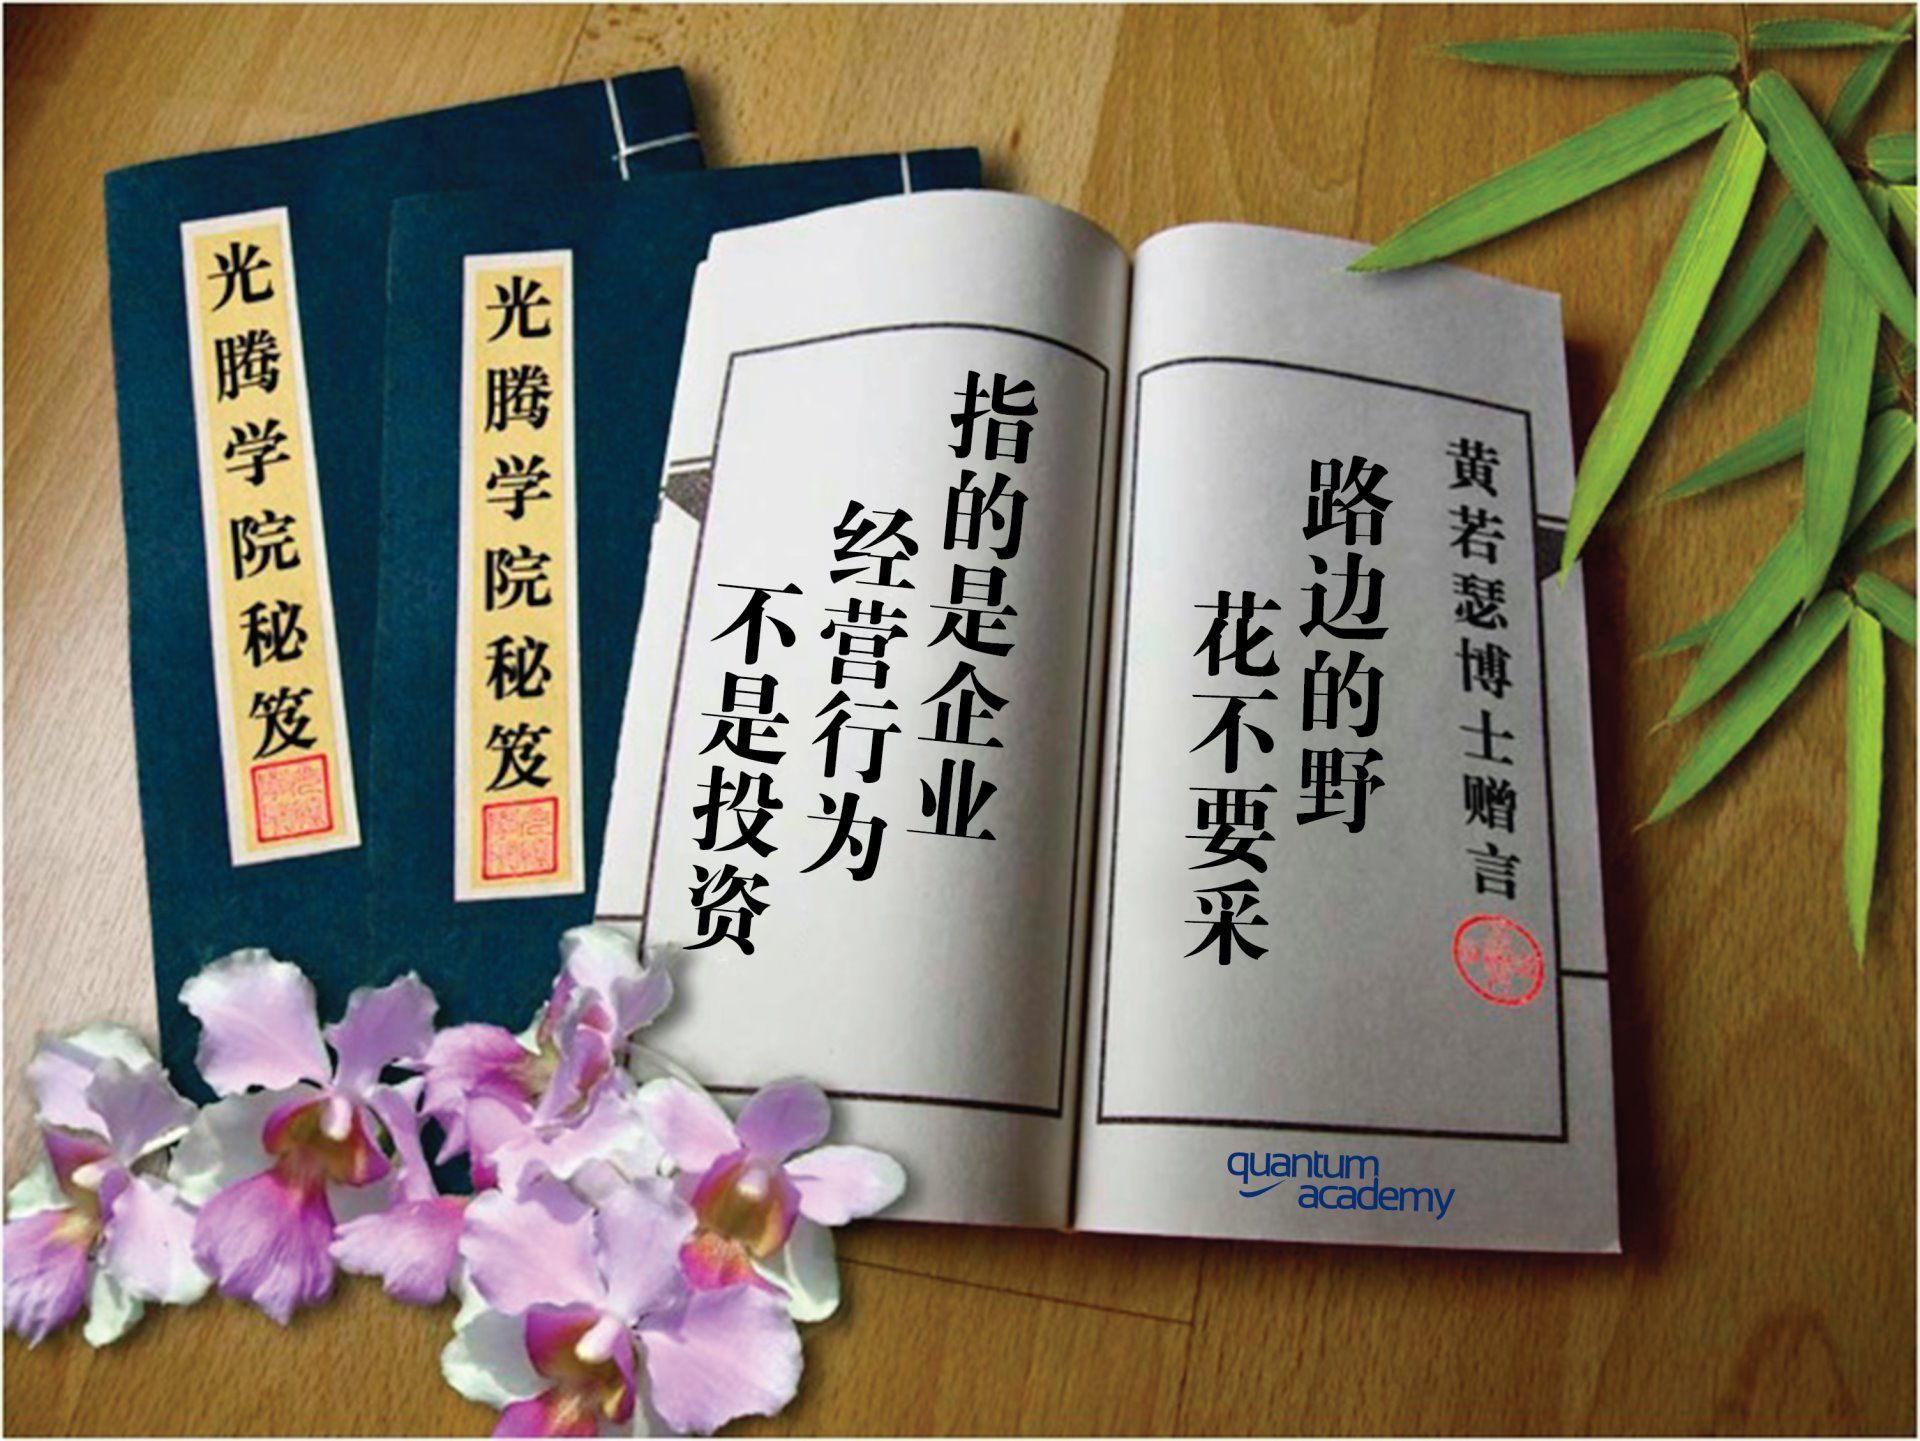 光腾学院秘笈
光腾学院秘笈
黄若瑟博士赠言
路边的野
花不要采
指的是企业
经营行为
不是投资
quantum
academy